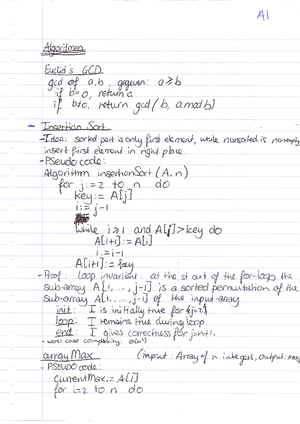 A1
Algoritmen
Euclid's GCD
gcd of a,b, gegeven: a≥b
if b=0, return a
if b≠0, return gcd(b, a mod b)
- Insertion Sort
- Idea: sorted part is only first element, while nonsorted is nonempty,
insert first element in right place.
- Pseudo code:
Algorithm insertionSort (A, n)
for j:=2 to n do
key:= A[j]
i:= j-1
while i≥1 and A[i]>key do
A[i+1]:= A[i]
i:= i-1
A[i+1]:= key
- Proof: Loop invariant: at the start of the for-loop the
sub-array A[1,...,j-1] is a sorted permutation of the
sub-array A[1,...,j-1] of the input-array
init: I is initially true for j=2
loop: I remains true during loop
end: I gives correctness for j=n+1.
- worst case complexity: O(n²)
arrayMax (input: Array of n integers, output: max
- Pseudo code:
currentMax:= A[1]
for i=2 to n do